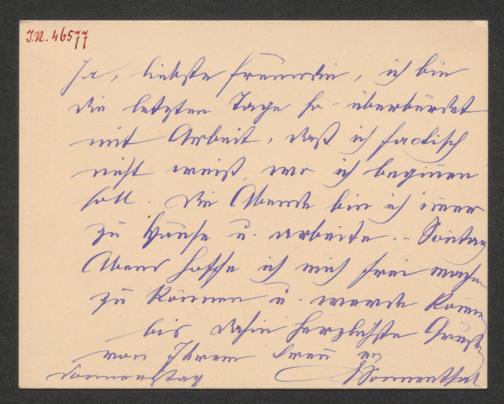 I.N. 46577
Ja, liebste Freundin, ich bin
die letzten Tage so überbürdet
mit Arbeit, daß ich factisch
nicht weiß, wo ich beginnen
soll. Die Abende bin ich immer
zu Hause u. arbeite. – Sontag
Abend hoffe ich mich frei machen
zu können u. werde kommen
bis dahin herzlichste Grüße
von Ihrem treu erg
Sonnenthal
Donnerstag